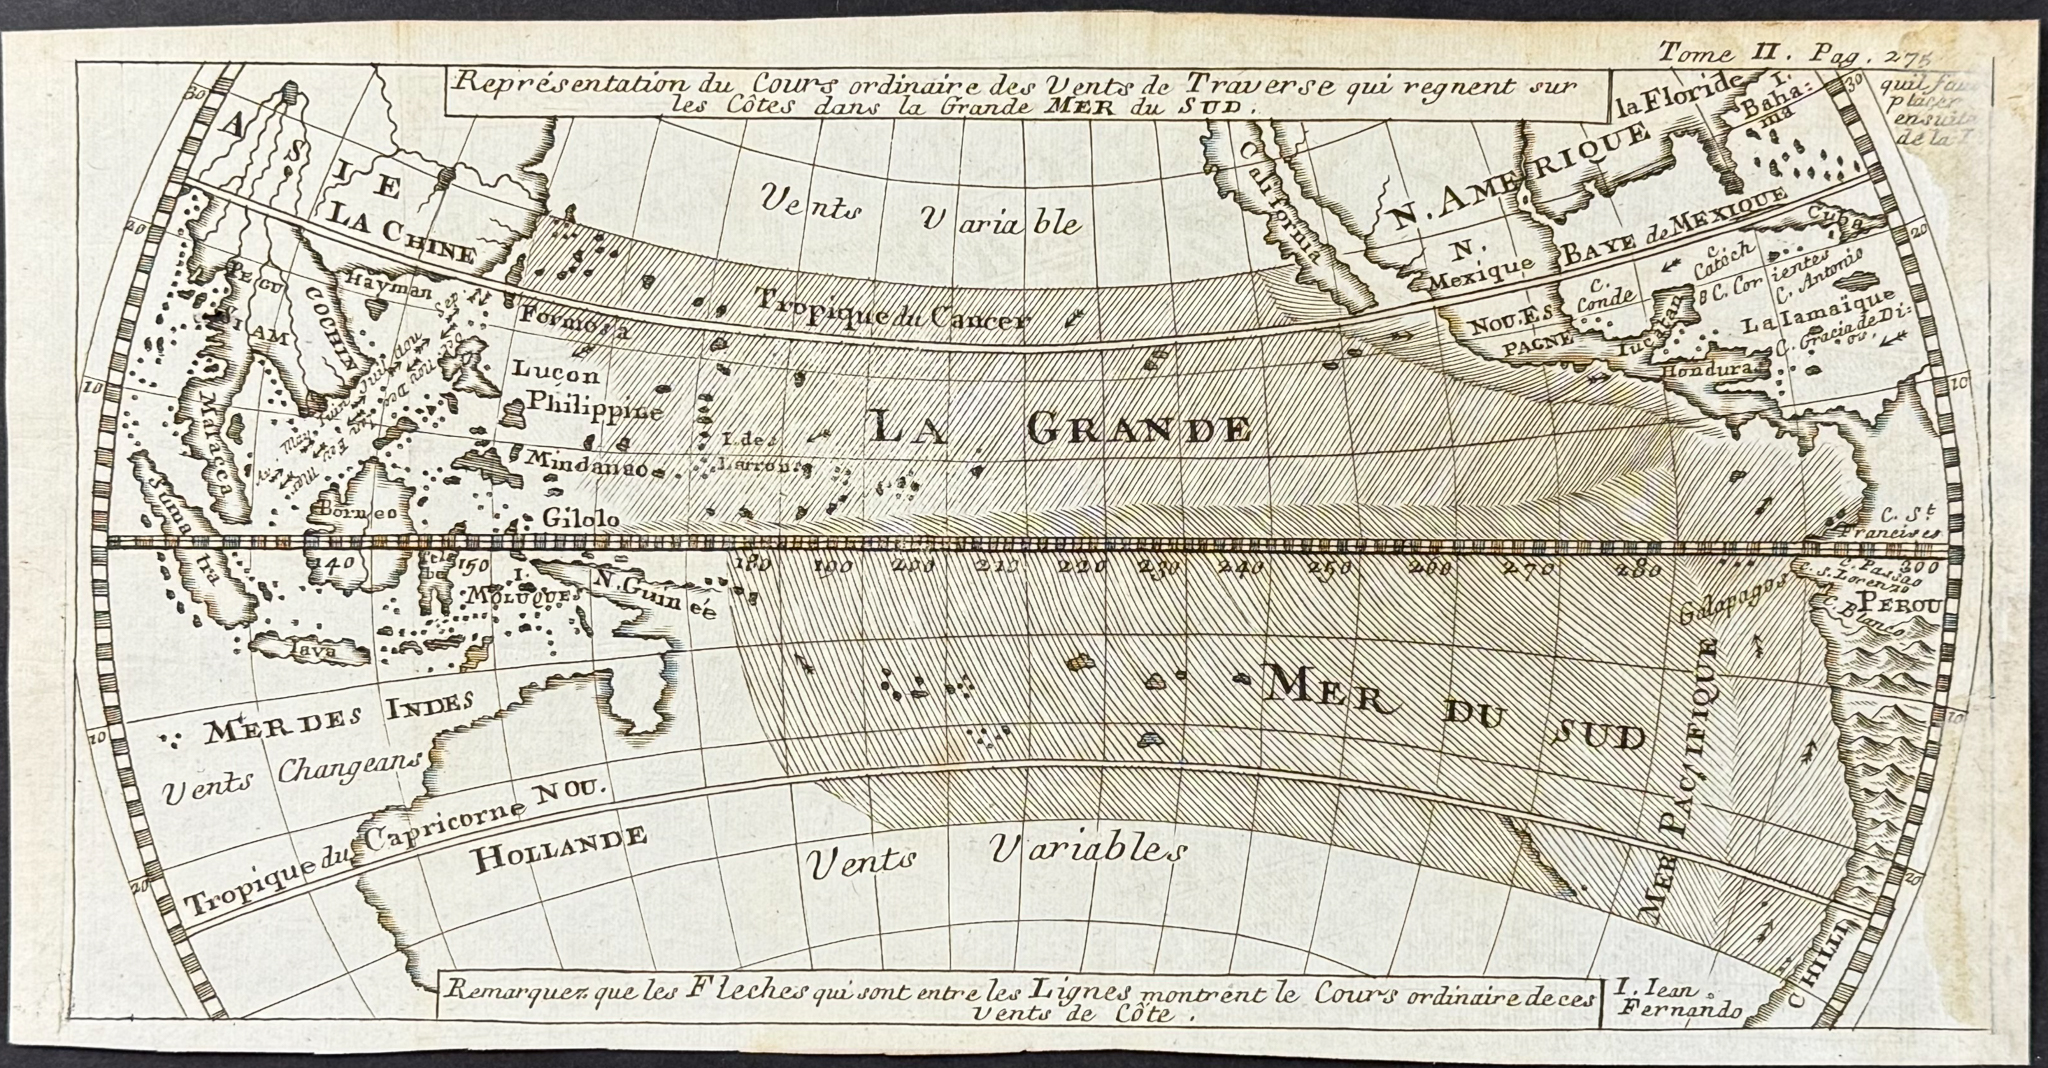 Tome II. Pag. 275
Représentation du Cours ordinaire des Vents de Traverse qui regnent sur
les Côtes dans la Grande MER du SUD.
quil fau
placer
ensuite
de la
30
A S I E
LA CHINE
Vents Variable
California
N. AMERIQUE
la Floride
I.
Baha:
ma
30
20
PEGU
SIAM
COCHIN
Hayman
Formosa
Tropique du Cancer
N.
Mexique
BAYE de MEXIQUE
Cuba
20
NOU. ES
PAGNE
C.
Conde
C.
Catoch
C. Corientes
C. Antonio
Iucatan
La Iamaïque
C. Gracia de Di:
os.
Honduras
10
Malacca
Luçon
Philippine
Mindanao
I. des
Larrons
LA GRANDE
10
Suma
tra
Borneo
Gilolo
C. St.
Francises
140
150
180
190
200
210
220
230
240
250
260
270
280
300
I.
MOLUQUES
N. Guinée
Galapagos
C. Passao
C. S. Lorenzo
C. Blanco
PEROU
Iava
MER DES INDES
Vents Changeans
MER DU SUD
MER PACIFIQUE
10
10
Tropique du Capricorne
NOU.
HOLLANDE
Vents Variables
20
20
CHILLI
Remarquez que les Fleches qui sont entre les Lignes montrent le Cours ordinaire de ces
Vents de Côte.
I. Iean
Fernando